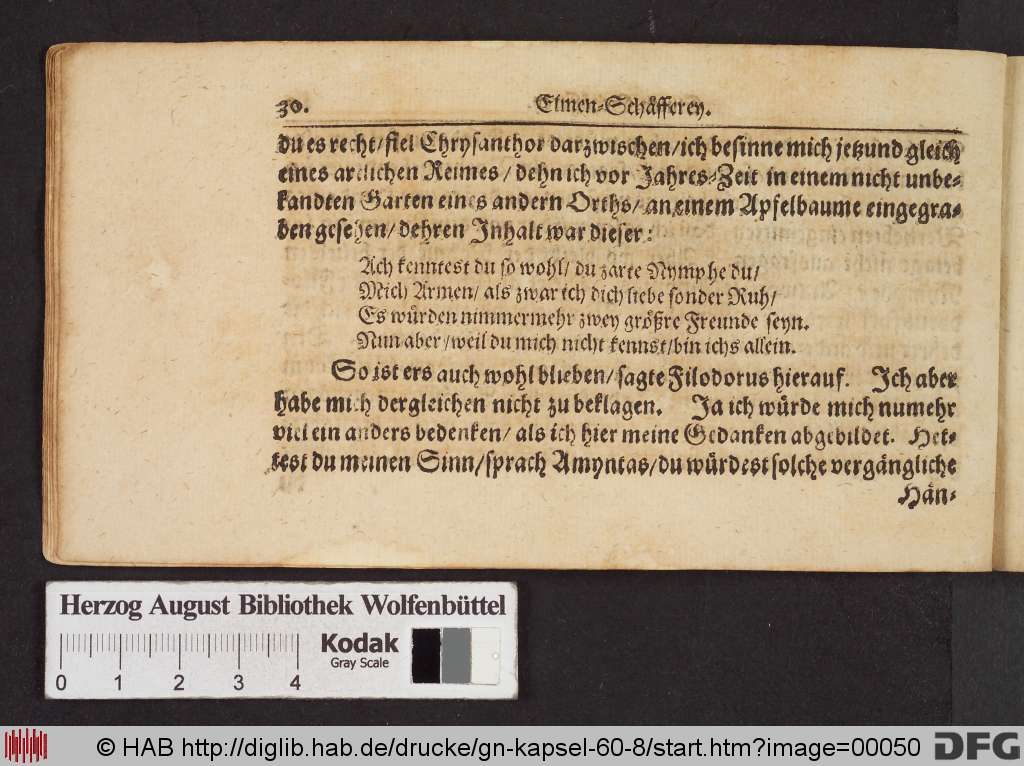 30. Elmen-Schäfferey.
du es recht/ fiel Chrysanthor darzwischen/ ich besinne mich jetzund gleich
eines artlichen Reimes / dehn ich vor Jahres-Zeit in einem nicht unbe-
kandten Garten eines andern Orths/ an einem Apfelbaume eingegra-
ben gesehen/ dehren Inhalt war dieser:
Ach kenntest du so wohl/ du zarte Nymphe du/
Mich Armen/ als zwar ich dich liebe sonder Ruh/
Es würden nimmermehr zwey größre Freunde seyn.
Nun aber/ weil du mich nicht kennst/ bin ichs allein.
So ist ers auch wohl blieben/ sagte Filodorus hierauf. Ich aber
habe mich dergleichen nicht zu beklagen. Ja ich würde mich numehr
viel ein anders bedenken/ als ich hier meine Gedanken abgebildet. Het-
test du meinen Sinn/ sprach Amyntas/ du würdest solche vergängliche
Hän-
Herzog August Bibliothek Wolfenbüttel
Kodak
Gray Scale
0 1 2 3 4
© HAB http://diglib.hab.de/drucke/gn-kapsel-60-8/start.htm?image=00050 DFG